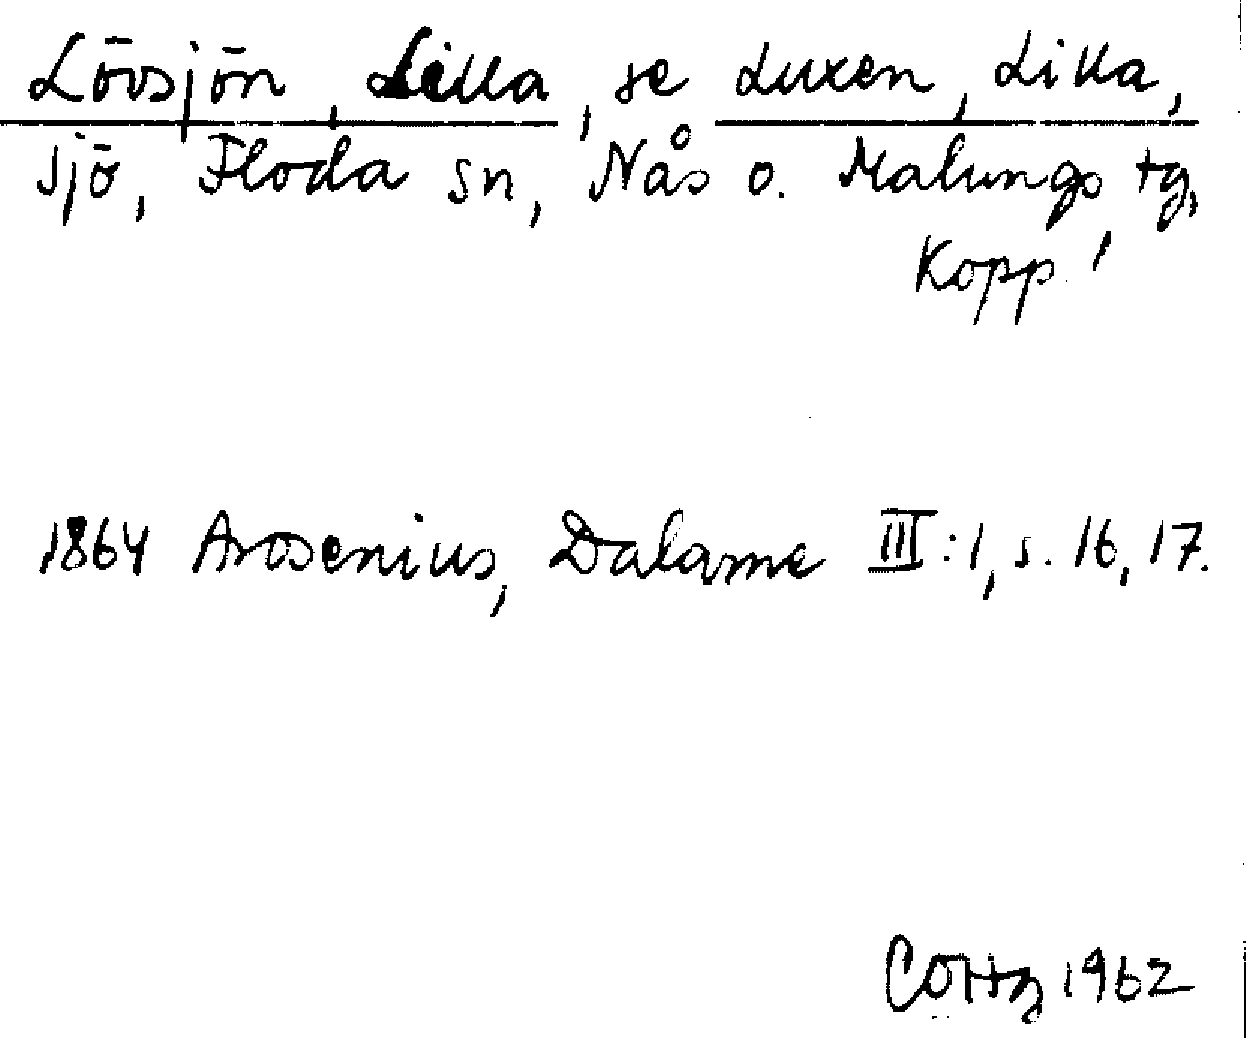 Lövsjön, Lilla, se Luxen, Lilla,
sjö, Floda sn, Nås o. Malungs tg,
Kopp.
1864 Arosenius, Dalarne III:1, s. 16, 17.
1962